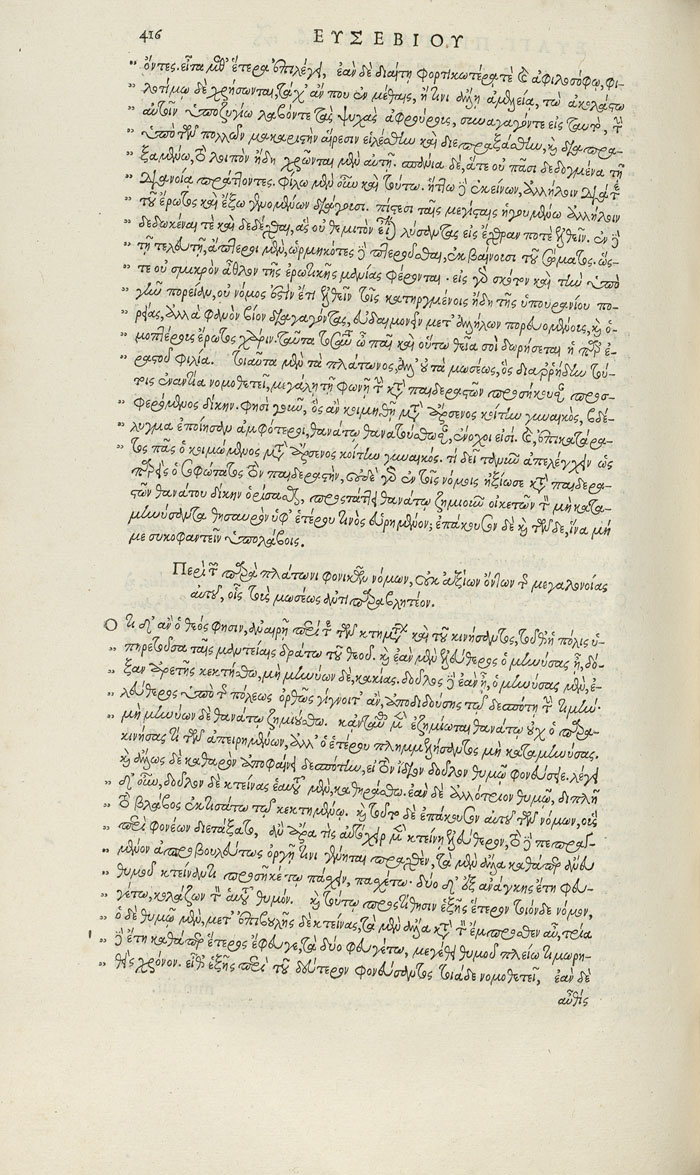 416 ΕΥΣΕΒΙΟΥ
" ὄντες. εἶτα μεθ' ἕτερα ἐπιλέγει, ἐὰν δὲ διαίτῃ φορτικωτέρα τε καὶ ἀφιλοσόφῳ, φι-
" λοτίμῳ δὲ χρήσωνται, τάχ' ἄν που ἐν μέθαις, ἤ τινι ἄλλῃ ἀμελείᾳ, τὼ ἀκολάστω
" αὐτοῖν ὑποζυγίω λαβόντε τὰς ψυχὰς ἀφρούρους, συναγαγόντε εἰς ταυτὸ, τὴν
" ὑπὸ τῶν πολλῶν μακαριστὴν αἵρεσιν εἱλέσθην καὶ διεπραξάσθην, καὶ διαπρα-
" ξαμένω, τὸ λοιπὸν ἤδη χρῶνται μὲν αὐτῇ. σπανίᾳ δὲ, ἅτε οὐ πάσῃ δεδογμένα τῇ
" διανοίᾳ πράττοντες. φίλω μὲν οὖν καὶ τούτω. ἧττω δὲ ἐκείνων, ἀλλήλοιν διά τε
" τοῦ ἔρωτος καὶ ἔξω γενομένων διάγουσι. πίστεσι ταῖς μεγίσταις ἡγουμένω ἀλλήλοιν
" δεδωκέναι τε καὶ δεδέχθαι, ἃς οὐ θεμιτὸν εἶναι λύσαντας εἰς ἔχθραν ποτὲ ἐλθεῖν. ἐν δὲ
" τῇ τελευτῇ, ἄπτεροι μὲν, ὡρμηκότες δὲ πτεροῦσθαι, ἐκβαίνουσι τοῦ σώματος. ὥς-
" τε οὐ σμικρὸν ἆθλον τῆς ἐρωτικῆς μανίας φέρονται. εἰς γὰρ σκότον καὶ τὴν ὑπὸ
" γῆν πορείαν, οὐ νόμος ἐστὶν ἔτι ἐλθεῖν τοῖς κατηργμένοις ἤδη τῆς ὑπουρανίου πο-
" ρείας, ἀλλὰ φανὸν βίον διαγαγόντας, εὐδαιμονεῖν μετ' ἀλλήλων πορευομένους, καὶ ὁ-
" μοπτέρους ἔρωτος χάριν. ταῦτα τοσαῦτα ὦ παῖ καὶ οὕτω θεῖα σοὶ δωρήσεται ἡ παρ' ἐ-
" ραστοῦ φιλία. τοιαῦτα μὲν τὰ πλάτωνος, ἀλλ' οὐ τὰ μωσέως, ὃς διαῤῥήδην τού-
τοις ἐναντία νομοθετεῖ, μεγάλῃ τῇ φωνῇ τὴν κατὰ παιδεραστῶν προσήκουσαν προσ-
" φερόμενος δίκην. φησὶ γοῦν, ὃς ἂν κοιμηθῇ μετὰ ἄρσενος κοίτην γυναικὸς, βδέ-
" λυγμα ἐποίησαν ἀμφότεροι, θανάτῳ θανατούσθωσαν, ἔνοχοί εἰσι. καὶ, ἐπικατάρα-
" τος πᾶς ὁ κοιμώμενος μετὰ ἄρσενος κοίτην γυναικός. τί δεῖ τανῦν ἀπελέγχειν ὡς
παρῆκεν ὁ σοφώτατος τὸν παιδεραστὴν, οὐδὲ γὰρ ἐν τοῖς νόμοις ἠξίωσε κατὰ παιδερα-
στῶν θανάτου δίκην ὁρίσασθαι, προστάττει θανάτῳ ζημιοῦν οἰκετῶν τὸν μὴ κατα-
μηνύσαντα θησαυρὸν ὑφ' ἑτέρου τινὸς εὑρημένον; ἐπάκουσον δὲ καὶ τῶνδε, ἵνα μή
με συκοφαντεῖν ὑπολάβοις.
Περὶ τῶν παρὰ πλάτωνι φονικῶν νόμων, οὐκ ἀξίων ὄντων τῆς μεγαλονοίας
αὐτοῦ, οἷς τοὺς μωσέως ἀντιπαραβλητέον.
Ὅ τι δ' ἂν ὁ θεός φησιν, ἀναιρῇ περί τε τῶν κτημάτων καὶ τοῦ κινήσαντος, τοῦθ' ἡ πόλις ὑ-
" πηρετοῦσα ταῖς μαντείαις δράτω τοῦ θεοῦ. καὶ ἐὰν μὲν ἐλεύθερος ὁ μηνύσας ᾖ, δό-
" ξαν ἀρετῆς κεκτήσθω, μὴ μηνύων δὲ, κακίας. δοῦλος δὲ ἐὰν ᾖ, ὁ μηνύσας μὲν, ἐ-
" λεύθερος ὑπὸ τῆς πόλεως ὀρθῶς γίγνοιτ' ἂν, ἀποδιδούσης τῷ δεσπότῃ τὴν τιμήν.
" μὴ μηνύων δὲ θανάτῳ ζημιούσθω. κἀνταῦθα μὲν ἐζημίωται θανάτῳ οὐχ ὁ παρα-
κινήσας τι τῶν ἀπειρημένων, ἀλλ' ὁ ἑτέρου πλημμελήσαντος μὴ καταμηνύσας.
καὶ ἄλλως δὲ καθαρὸν ἀποφαίνει δεσπότην, εἰ τὸν ἴδιον δοῦλον θυμῷ φονεύσειε. λέγει
" δ' οὖν, δοῦλον δὲ κτείνας ἑαυτοῦ μὲν, καθηράσθω. ἐὰν δὲ ἀλλότριον θυμῷ, διπλῆ
" τὸ βλάβος ἐκτισάτω τῷ κεκτημένῳ. καὶ τοῦτο δὲ ἐπάκουσον αὐτοῦ τῶν νόμων, οὓς
" περὶ φονέων διετάξατο, ἂν ἄρα τις αὐτόχειρ μὲν κτείνῃ ἐλεύθερον, τὸ δὲ πεπραγ-
" μένον ἀπροβουλεύτως ὀργῇ τινι γένηται πραχθὲν, τὰ μὲν ἄλλα καθάπερ ἄνευ
" θυμοῦ κτείναντι προσῆκέ τῳ πάσχειν, πασχέτω. δύο δ' ἐξ ἀνάγκης ἔτη φευ-
" γέτω, κολάζων τὸν αὑτοῦ θυμόν. καὶ τούτῳ προστίθησιν ἑξῆς ἕτερον τοιόνδε νόμον,
" ὁ δὲ θυμῷ μὲν, μετ' ἐπιβουλῆς δὲ κτείνας, τὰ μὲν ἄλλα κατὰ τὸν ἔμπροσθεν αὖ, τρία
" δὲ ἔτη καθάπερ ἕτερος ἔφευγε, τὰ δύο φευγέτω, μεγέθει θυμοῦ πλείω τιμωρη-
" θεὶς χρόνον. εἶθ' ἑξῆς περὶ τοῦ δεύτερον φονεύσαντος τοιάδε νομοθετεῖ, ἐὰν δὲ
αὖθις